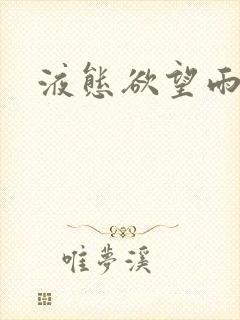 液態欲望雨
唯夢溪